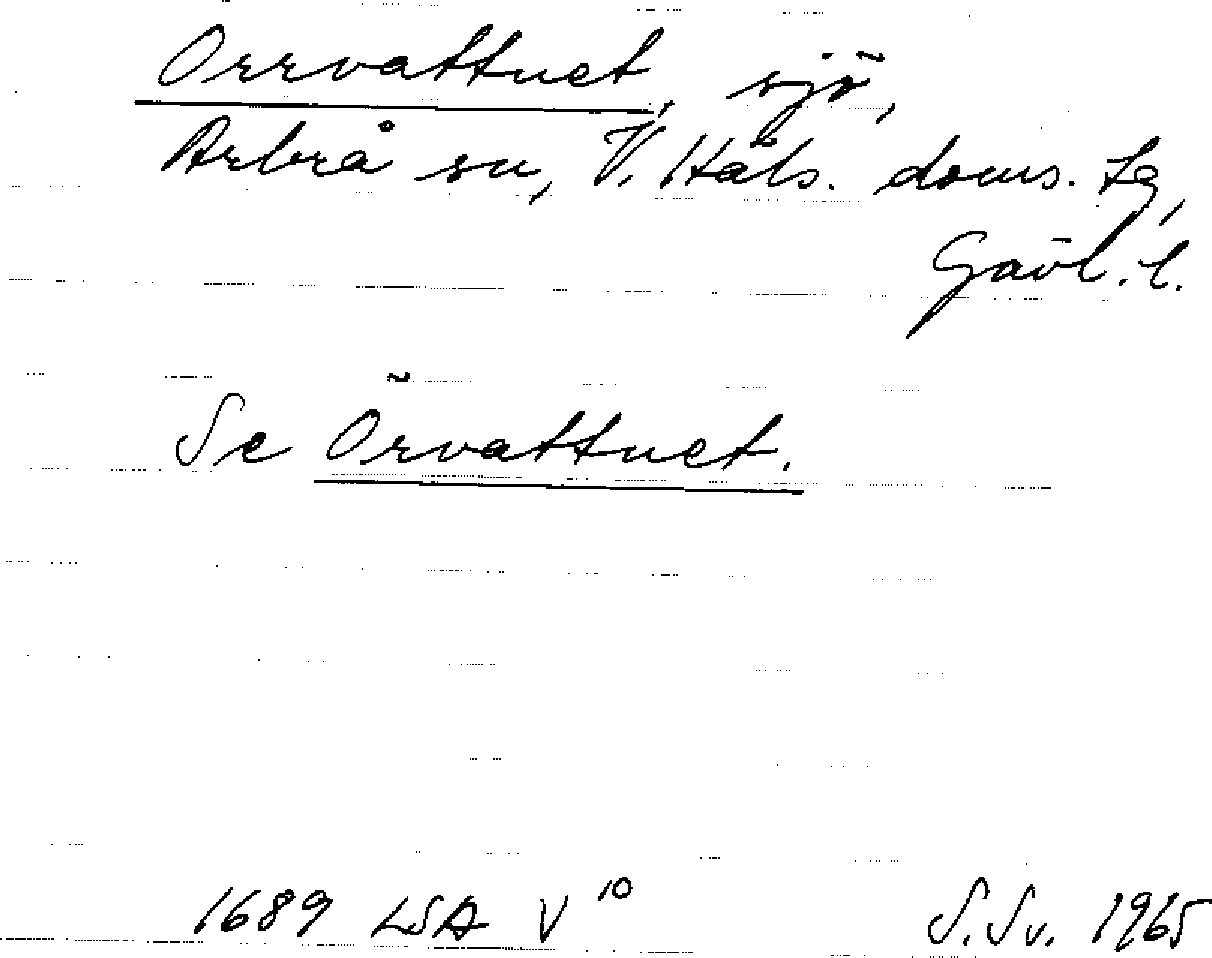 Orrvattnet, sjö,
Arbrå sn, V. Häls. doms. tg,
Gävl. l.
Se Örvattnet.
1689 LSA V 10 S. Sv. 1965